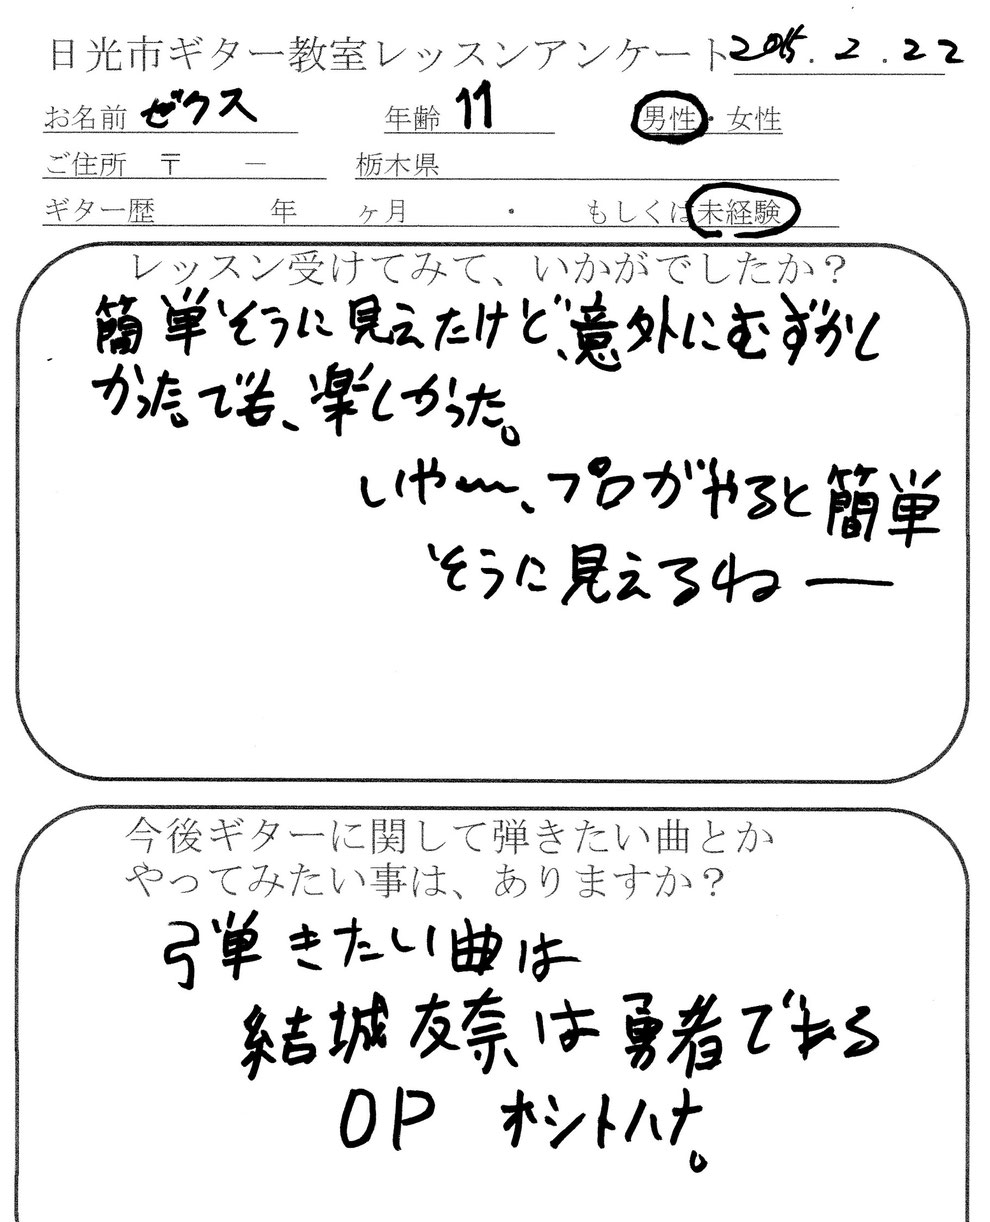 日光市ギター教室レッスンアンケート 2015.2.22
お名前 ゼクス 年齢 11 男性・女性
ご住所 〒 － 栃木県
ギター歴 年 ヶ月 ・ もしくは未経験
レッスン受けてみて、いかがでしたか？
簡単そうに見えたけど、意外にむずかし
かった。でも、楽しかった。
いや〜、プロがやると簡単
そうに見えるねー
今後ギターに関して弾きたい曲とか
やってみたい事は、ありますか？
弾きたい曲は
結城友奈は勇者である
OP ホシトハナ。